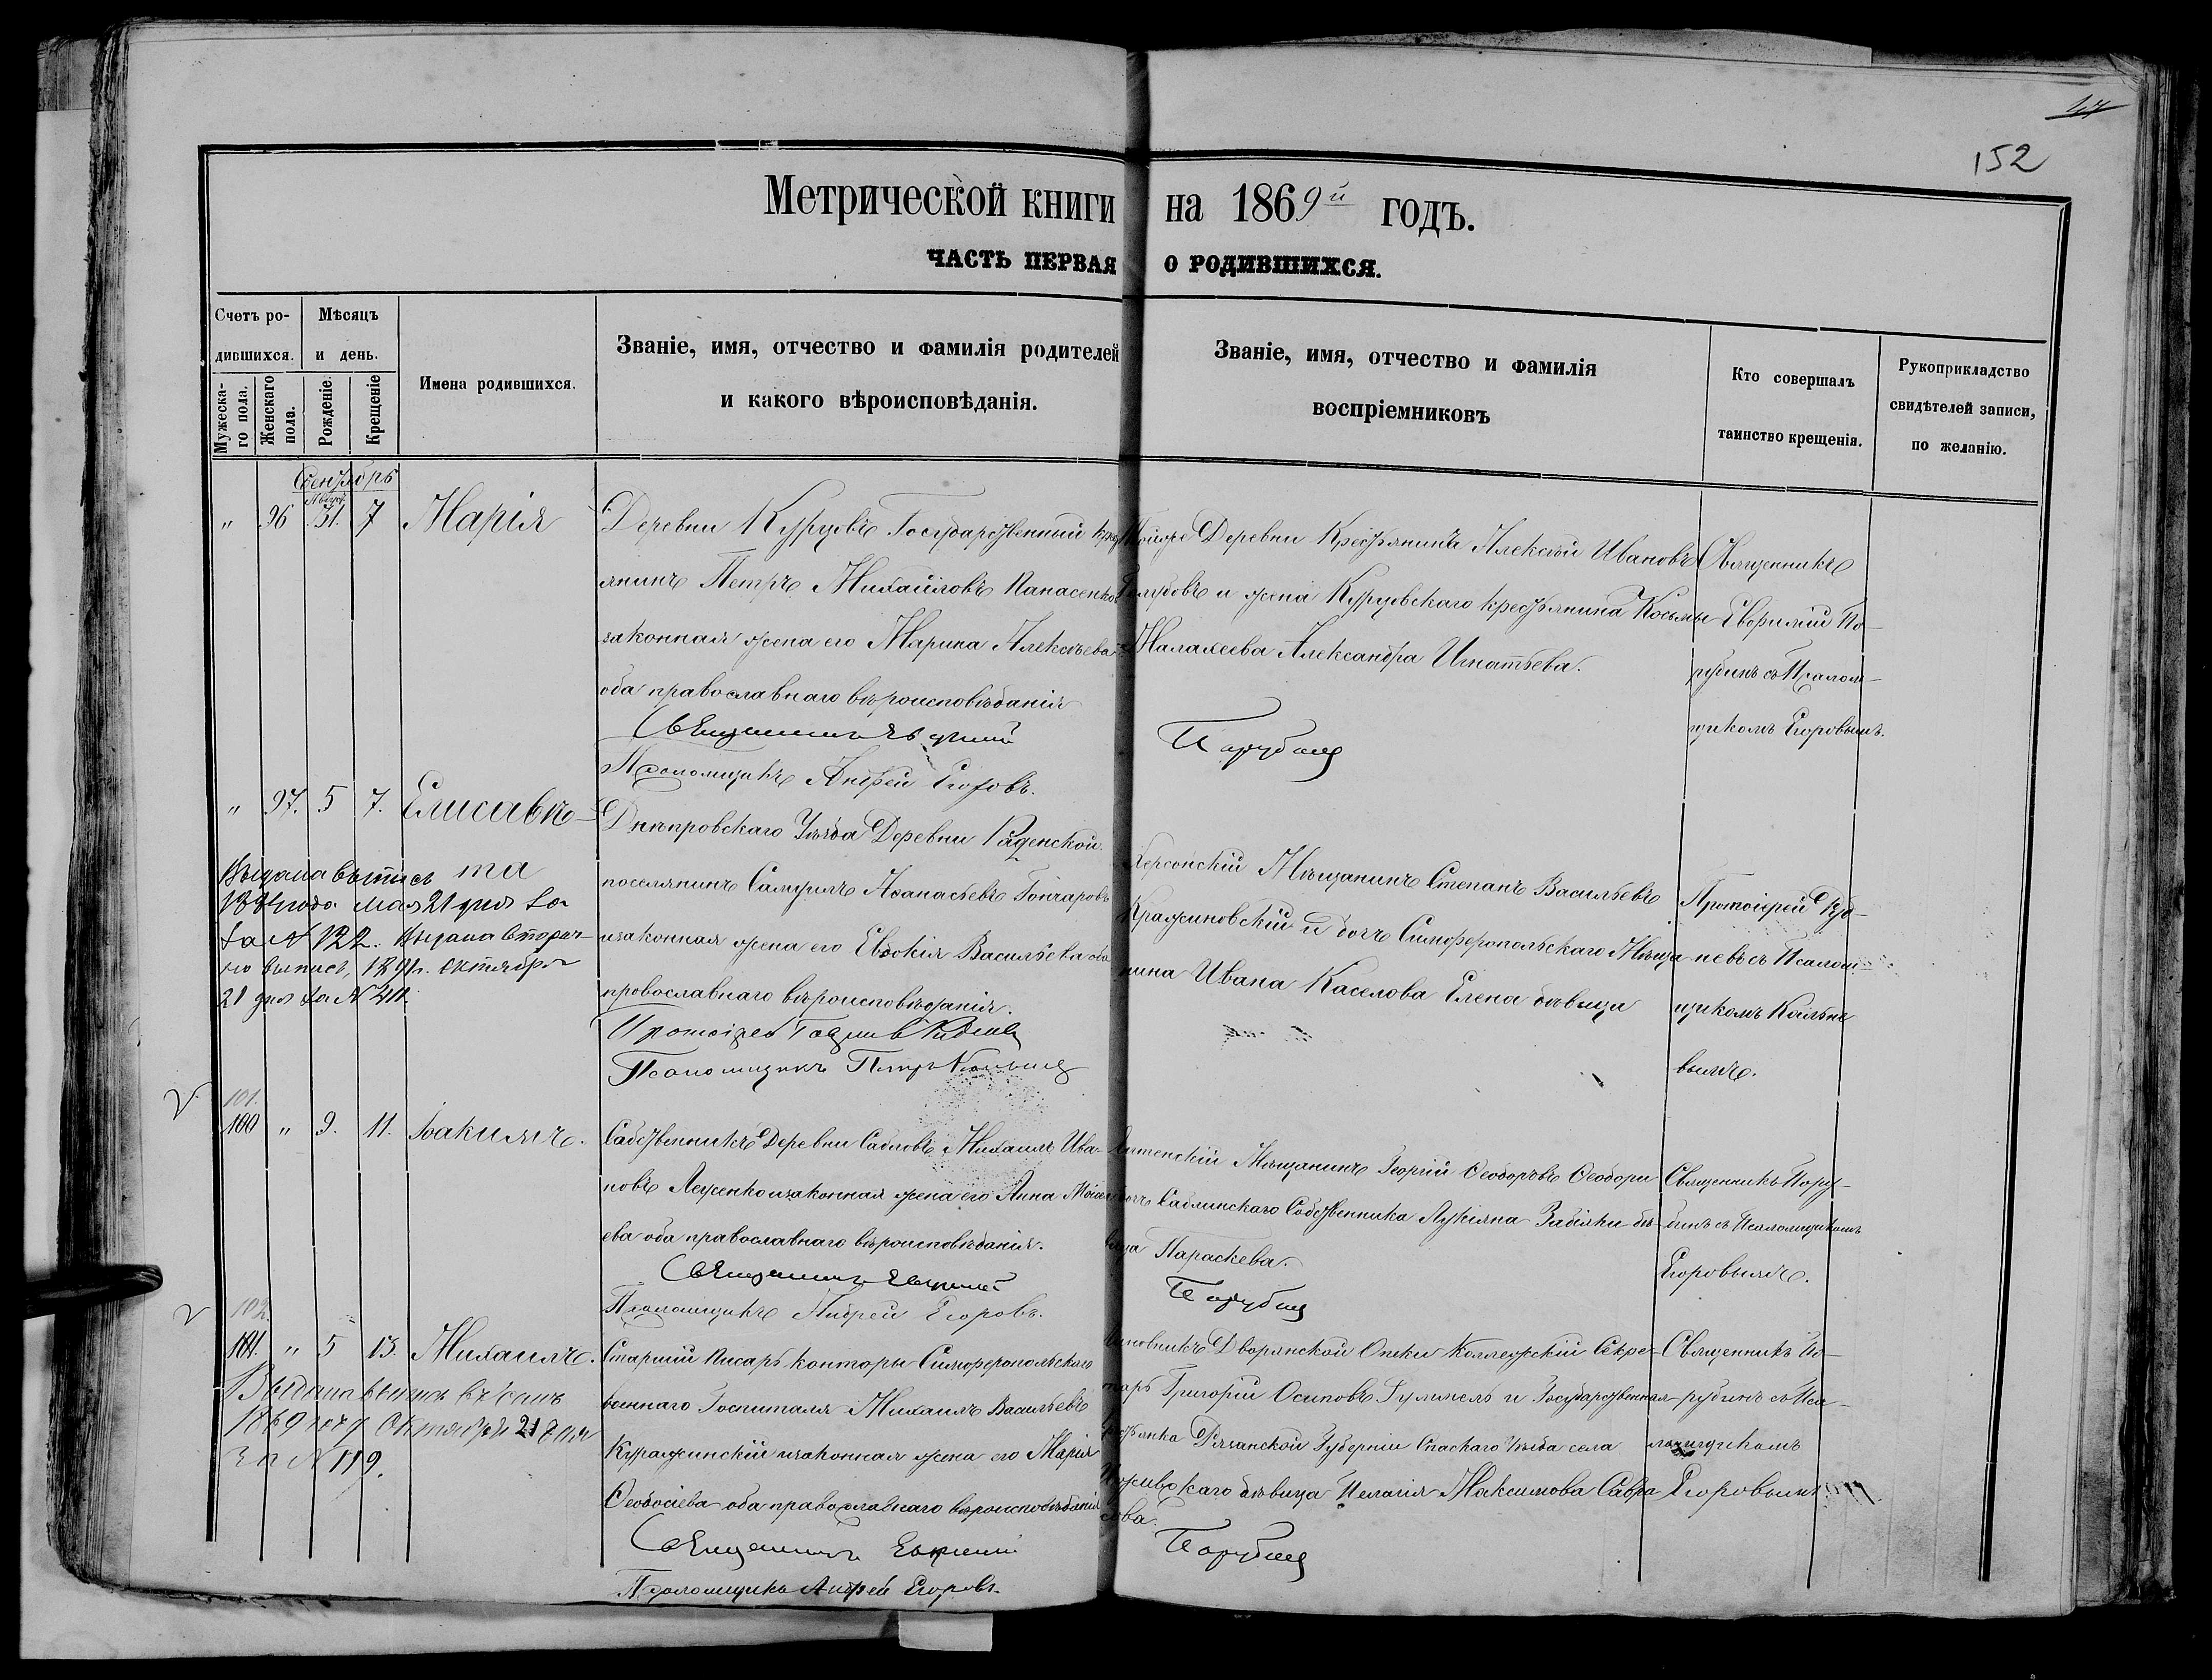 152
Метрической книги на 1869й годъ.
ЧАСТЬ ПЕРВАЯ О РОДИВШИХСЯ.
Счетъ ро-
дившихся.
Мужеска-
го пола.
Женскаго
пола.
Мѣсяцъ
и день.
Рожденіе.
Крещеніе
Имена родившихся.
Званіе, имя, отчество и фамилія родителей
и какого вѣроисповѣданія.
Званіе, имя, отчество и фамилія
воспріемниковъ
Кто совершалъ
таинство крещенія.
Рукоприкладство
свидѣтелей записи,
по желанію.
Сентябрь
Август.
" 96 31. 7 Марія
Деревни Курцовъ Государственный крест
янинъ Петръ Михайловъ Панасенко
законная жена его Марина Алексѣева
оба православнаго вѣроисповѣданія
Священникъ Евѳимій Порубинъ
Псаломщикъ Андрей Егоровъ.
Тойже Деревни Крестьянинъ Алексѣй Ивановъ
и жена Курцовскаго крестьянина Косьмы
Малахеева Александра Игнатьева.
Священникъ
Евѳимій По-
рубинъ съ Псалом-
щикомъ Егоровымъ.
" 97. 5 7. Елисаве-
та
Выдана выпись
1884 года мая 21 дня за
за № 122. Выдана вторич-
но выпись, 1891г. Октября
21 дня за № 411.
Днѣпровскаго Уѣзда Деревни Раденской
поселянинъ Самуилъ Аѳанасьевъ Гончаровъ
изаконная жена его Евдокія Васильева оба
провославнаго вѣроисповѣданія.
Протоіерей
Псаломщикъ Петръ
Херсонскій Мѣщанинъ Степанъ Васильевъ
Кражиновскій и дочь Симферопольскаго Мѣща
нина Ивана Каселова Елена дѣвица
Протоіерей Руд-
невъ съ Псалом-
щикомъ
вымъ.
101.
100 " 9. 11. Іоакимъ.
Собственникъ Деревни Сабловъ Михаилъ Ива-
новъ Ляшенко изаконная жена его Анна Моисе
ева оба православнаго вѣроисповѣданія.
Священникъ Евѳимій Порубинъ
Псаломщикъ Андрей Егоровъ.
Мѣщанинъ Георгій Ѳеодоровъ Ѳеодори
дочь Саблинскаго Собственника Лукіяна Забіяки дѣ-
вица Параскева.
Священникъ Пору-
бинъ съ Псаломщикомъ
Егоровымъ.
102.
101. " 5 13. Михаилъ.
Выдана выпись въ семъ
1869 году Октября 21 дня
за № 119.
Старшій писарь конторы Симферопольскаго
военнаго Госпиталя Михаилъ Васильевъ
Куражинскій изаконная жена его Марія
Ѳеодосіева оба православнаго вѣроисповѣданія
Священникъ Евѳимій Порубинъ
Псаломщикъ Андрей Егоровъ.
Чиновникъ Дворянской Опеки Коллежскій Секре-
тарь Григорій Осиповъ и Государственная
крестьянка Рязанской Губерніи Спаскаго Уѣзда села
дѣвица Пелагія Максимова
Священникъ По-
рубинъ съ Пса-
ломщикомъ
Егоровымъ